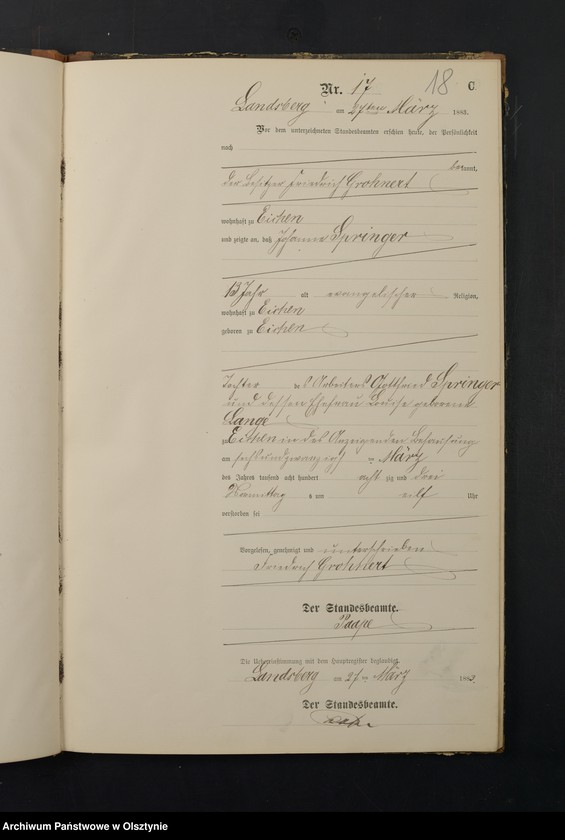 Nr. 17 18 C.
Landsberg am 27ten März 1883.
Vor dem unterzeichneten Standesbeamten erschien heute, der Persönlichkeit
nach
bekannt,
der Besitzer Friedrich Grohnert
wohnhaft zu Eichen
und zeigte an, daß Johanna Springer
13 Jahr alt evangelischer Religion,
wohnhaft zu Eichen
geboren zu Eichen
Tochter des Arbeiters Gottfried Springer
und dessen Ehefrau Louise geborene
Lange
zu Eichen in des Anzeigenden Behausung
am sechsundzwanzigsten März
des Jahres tausend acht hundert achtzig und drei
Vormittag s um elf Uhr
verstorben sei
Vorgelesen, genehmigt und unterschrieben
Friedrich Grohnert
Der Standesbeamte.
Paape
Die Uebereinstimmung mit dem Hauptregister beglaubigt.
Landsberg am 27ten März 1883.
Der Standesbeamte.
Archiwum Państwowe w Olsztynie